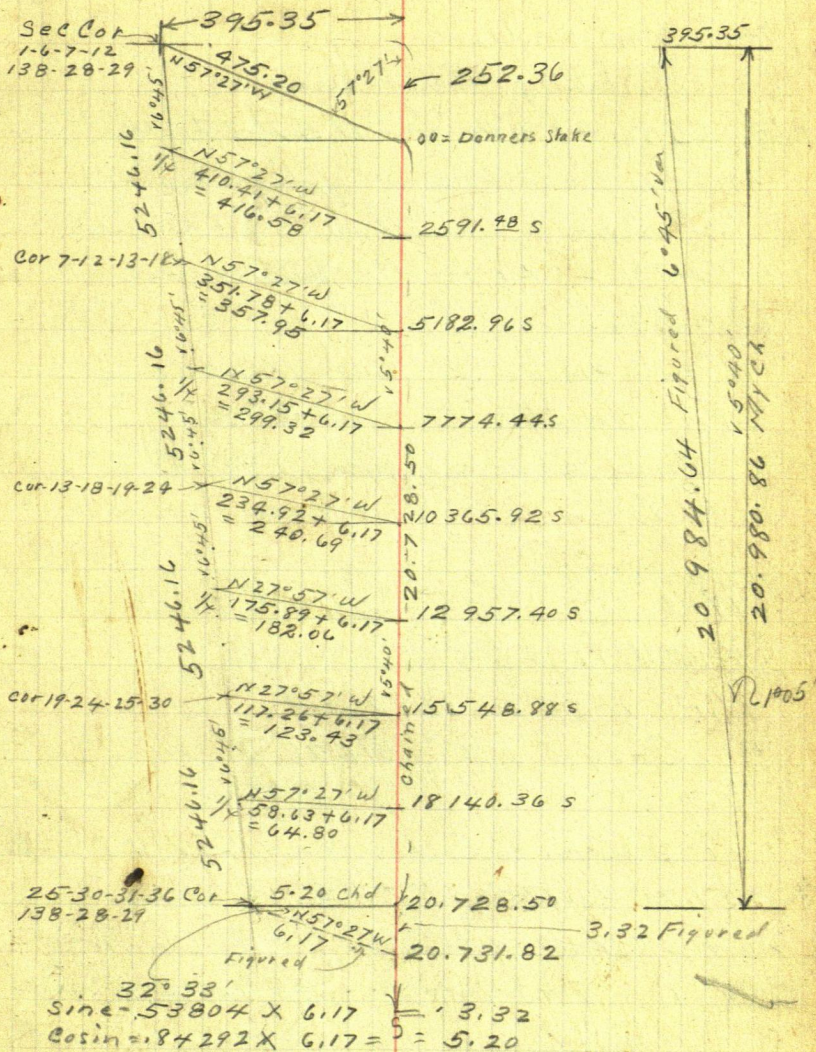 395.35
Sec Cor
1-6-7-12
138-28-29
475.20
N57°27'W
57°27'
252.36
00 = Donners Stake
v6°45'
5246.16
1/4
N57°27'W
410.41+6.17
= 416.58
2591.48 S
Cor 7-12-13-18
N57°27'W
351.78+6.17
= 357.95
5182.96 S
v5°40'
v6°45'
5246.16
1/4
N57°27'W
293.15+6.17
= 299.32
7774.44 S
v6°45'
cor-13-18-19-24
N57°27'W
234.92+6.17
= 240.69
10 365.92 S
v6°45'
5246.16
1/4
N27°57'W
175.89+6.17
= 182.06
12 957.40 S
v5°40'
cor 19-24-25-30
N27°57'W
117.26+6.17
= 123.43
15 548.88 S
v6°45'
5246.16
1/4
N57°27'W
58.63+6.17
= 64.80
18 140.36 S
Chained - 20.728.50
25-30-31-36 Cor
138-28-29
5.20 Chd
20.728.50
N57°27W
6.17
Figured
3.32 Figured
20.731.82
S
32° 33'
Sine - .53804 X 6.17 = 3.32
Cosin = .84292 X 6.17 = 5.20
395.35
20.984.64 Figured 6°45' Var
v5°40'
20.980.86 My Ch
1°05'